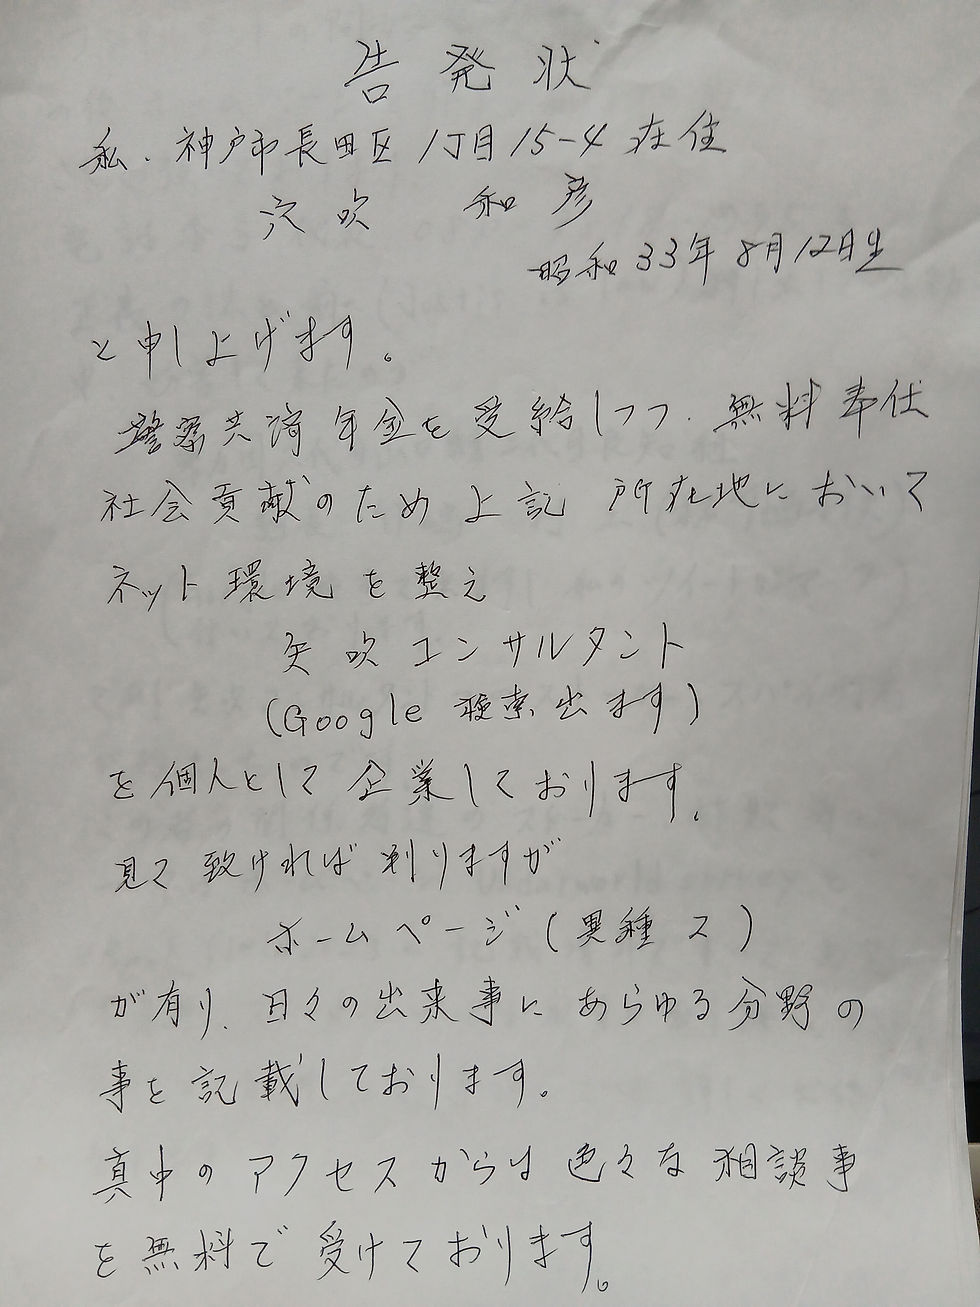 告発状
私、神戸市長田区1丁目15-4在住
穴吹 和彦
昭和33年8月12日生
と申し上げます。
警察共済年金を受給しつつ、無料奉仕
社会貢献のため上記所在地において
ネット環境を整え
矢吹コンサルタント
(Google 検索出ます)
を個人として企業しております。
見て致ければ判りますが
ホームページ(異種ス)
が有り、日々の出来事にあらゆる分野の
事を記載しております。
真中のアクセスからは色々な相談事
を無料で受けております。